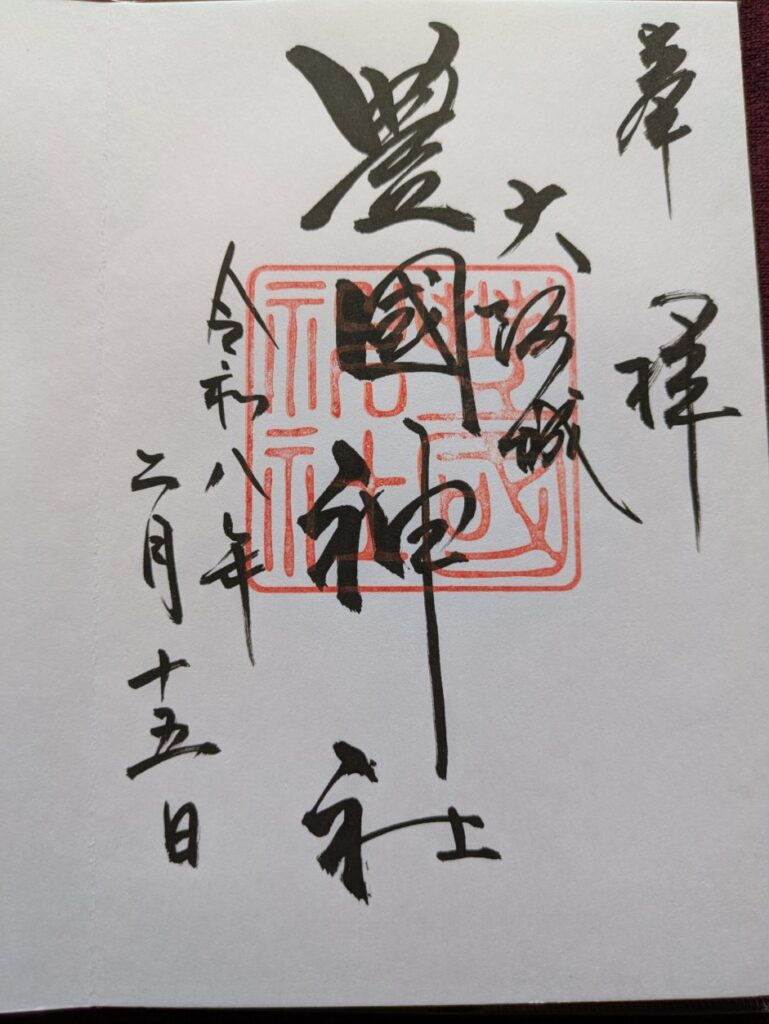 奉拝
大阪城
豊國神社
豊國神社
令和八年
二月十五日